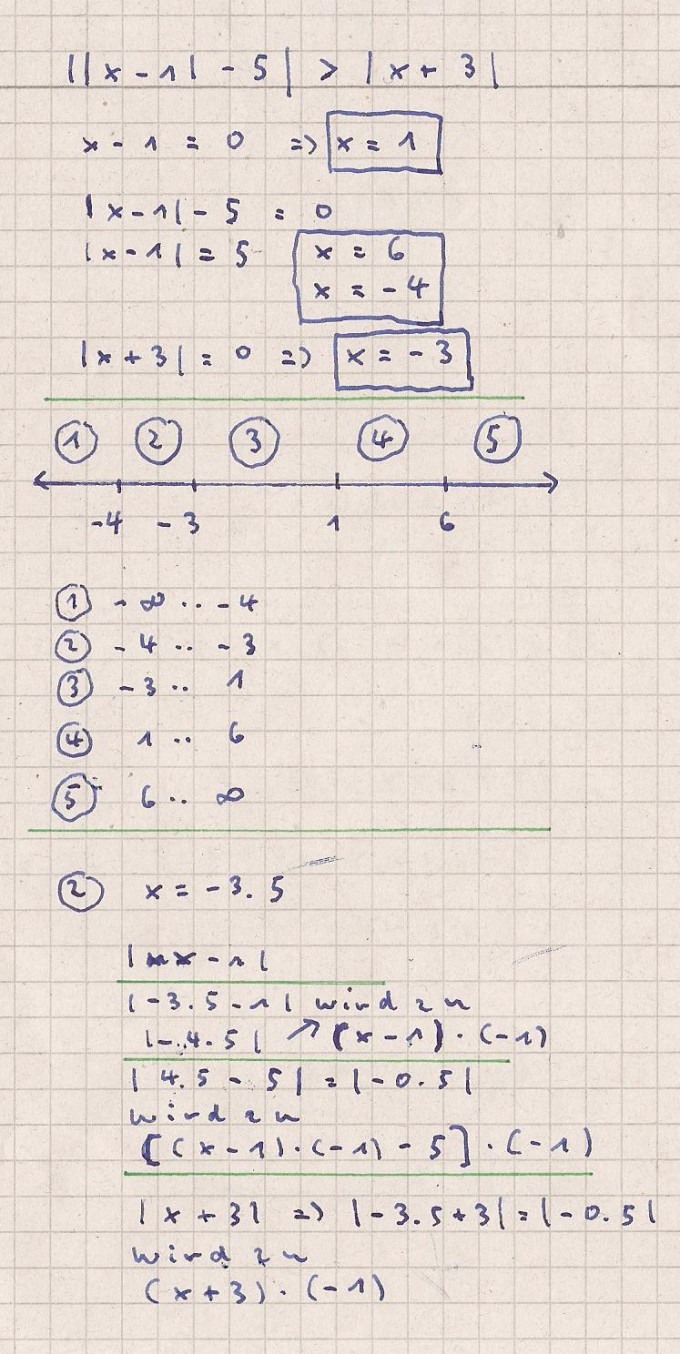 ||x - 1| - 5| > |x + 3|
x - 1 = 0 => x = 1
|x - 1| - 5 = 0
|x - 1| = 5 x = 6
x = -4
|x + 3| = 0 => x = -3
1 2 3 4 5
-4 -3 1 6
1 -∞ .. -4
2 -4 .. -3
3 -3 .. 1
4 1 .. 6
5 6 .. ∞
2 x = -3.5
|x - 1|
|-3.5 - 1| wird zu
|-4.5| ↗ (x - 1) · (-1)
|4.5 - 5| = |-0.5|
wird zu
[(x - 1) · (-1) - 5] · (-1)
|x + 3| => |-3.5 + 3| = |-0.5|
wird zu
(x + 3) · (-1)